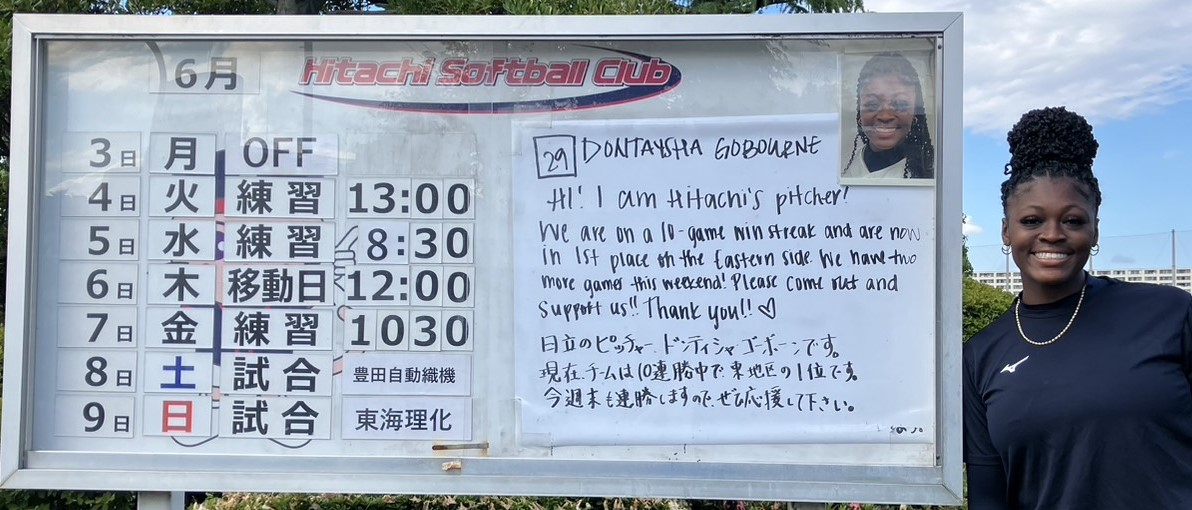 6月
Hitachi Softball Club
3日 月 OFF
4日 火 練習 13:00
5日 水 練習 8:30
6日 木 移動日 12:00
7日 金 練習 1030
8日 土 試合 豊田自動織機
9日 日 試合 東海理化
29 DONTAYSHA GOBOURNE
Hi! I am Hitachi's pitcher!
We are on a 10-game win streak and are now
in 1st place on the Eastern side. We have two
more games this weekend! Please come out and
support us!! Thank you!! ♡
日立のピッチャー ドンティシャ ゴーボーンです。
現在チームは10連勝中で東地区の1位です。
今週末も連勝しますので、ぜひ応援して下さい。